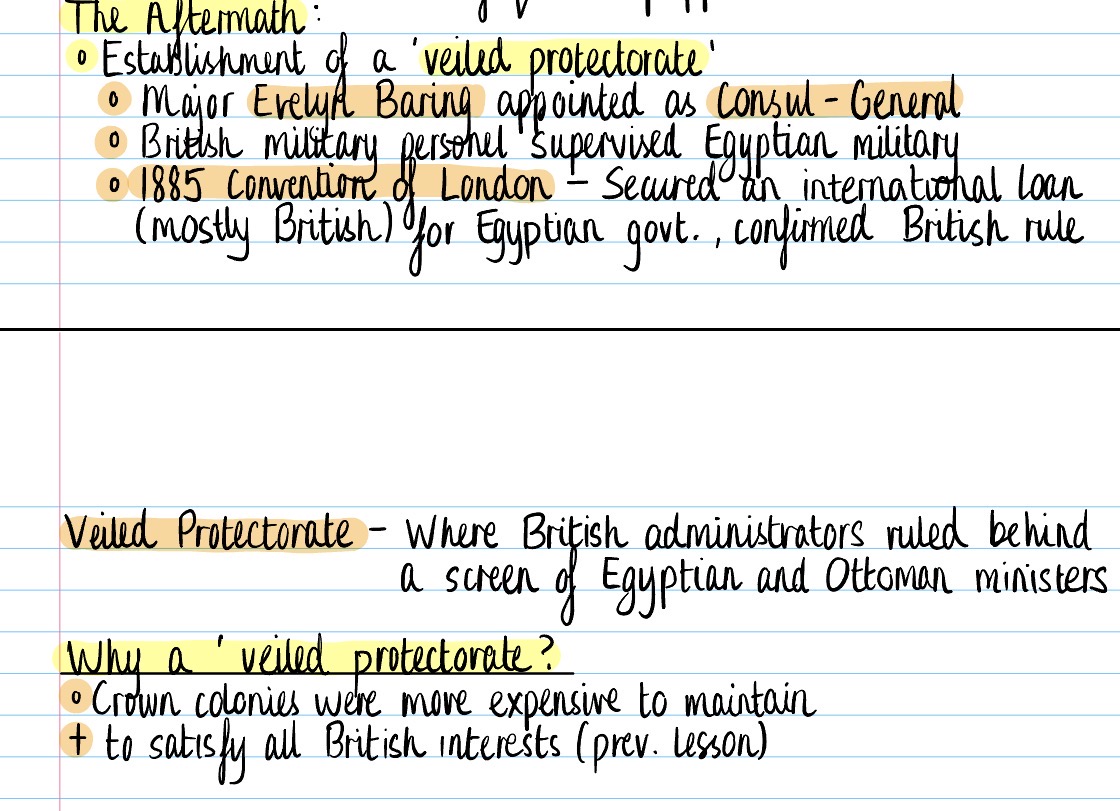 The Aftermath:
o Establishment of a 'veiled protectorate'
o Major Evelyn Baring appointed as Consul-General
o British military personel supervised Egyptian military
o 1885 Convention of London – Secured an international loan
(mostly British) for Egyptian govt., confirmed British rule
Veiled Protectorate – Where British administrators ruled behind
a screen of Egyptian and Ottoman ministers
Why a 'veiled protectorate?
o Crown colonies were more expensive to maintain
+ to satisfy all British interests (prev. lesson)